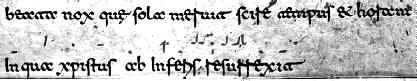 beata nox quę sola meruit scire tempus & horam
In qua xpistus ab Inferis resurrexit